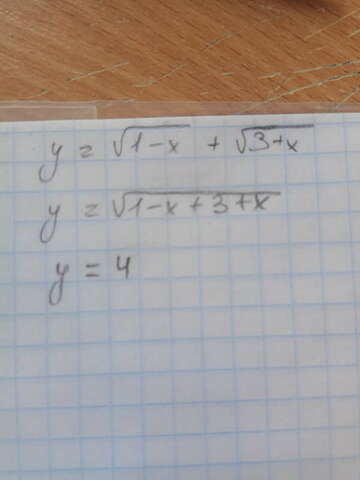 y = √1-x + √3+x
y = √1-x+3+x
y = 4